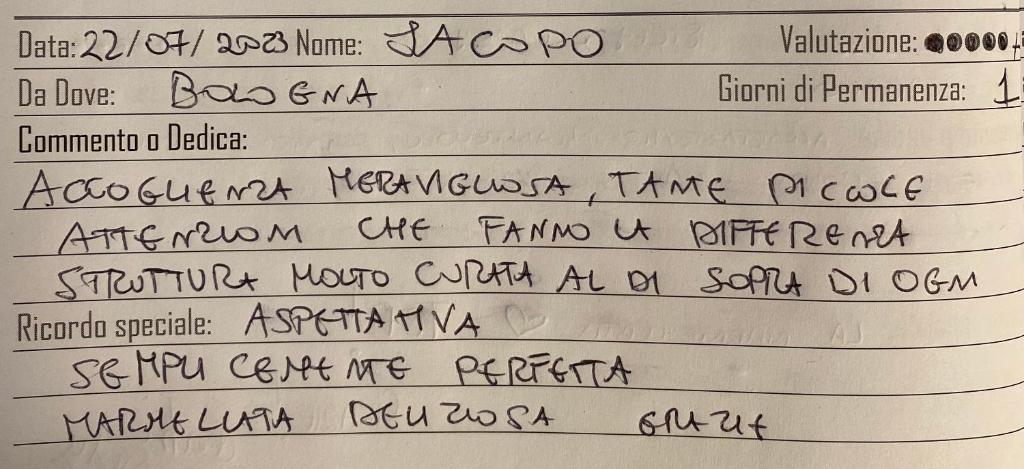 Data: 22/07/2023 Nome: JACOPO Valutazione:
Da Dove: BOLOGNA Giorni di Permanenza: 1
Commento o Dedica:
ACCOGLIENZA MERAVIGLIOSA, TANTE PICCOLE
ATTENZIONI CHE FANNO LA DIFFERENZA
STRUTTURA MOLTO CURATA AL DI SOPRA DI OGNI
Ricordo speciale: ASPETTATIVA
SEMPLICEMENTE PERFETTA
MARMELLATA DELIZIOSA GRAZIE